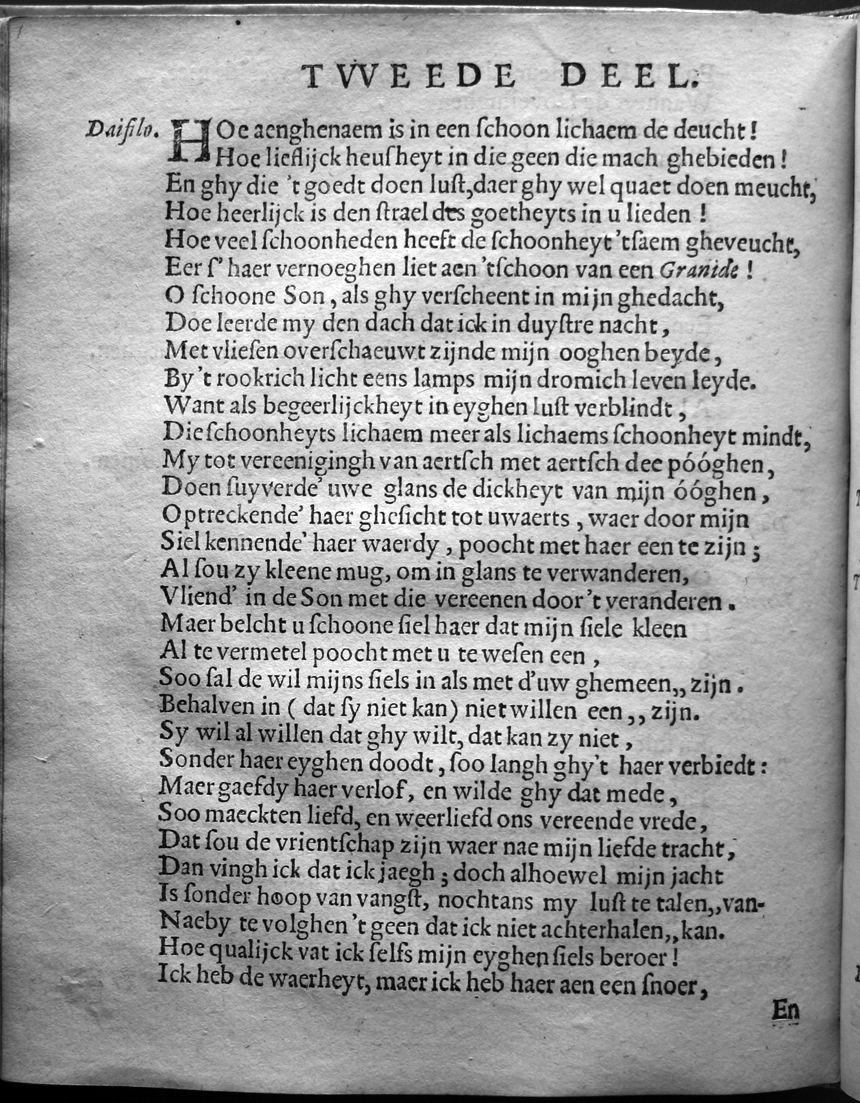 TVVEEDE DEEL.
Daifilo. HOe aenghenaem is in een ſchoon lichaem de deucht!
Hoe lieflijck heuſheyt in die geen die mach ghebieden!
En ghy die 't goedt doen luſt, daer ghy wel quaet doen meucht,
Hoe heerlijck is den ſtrael des goetheyts in u lieden!
Hoe veel ſchoonheden heeft de ſchoonheyt 'tſaem gheveucht,
Eer ſ' haer vernoeghen liet aen 'tſchoon van een Granide!
O ſchoone Son, als ghy verſcheent in mijn ghedacht,
Doe leerde my den dach dat ick in duyſtre nacht,
Met vlieſen overſchaeuwt zijnde mijn ooghen beyde,
By 't rookrich licht eens lamps mijn dromich leven leyde.
Want als begeerlijckheyt in eyghen luſt verblindt,
Die ſchoonheyts lichaem meer als lichaems ſchoonheyt mindt,
My tot vereenigingh van aertſch met aertſch dee póóghen,
Doen ſuyverde' uwe glans de dickheyt van mijn óóghen,
Optreckende' haer gheſicht tot uwaerts, waer door mijn
Siel kennende' haer waerdy, poocht met haer een te zijn;
Al ſou zy kleene mug, om in glans te verwanderen,
Vliend' in de Son met die vereenen door 't veranderen.
Maer belcht u ſchoone ſiel haer dat mijn ſiele kleen
Al te vermetel poocht met u te weſen een,
Soo ſal de wil mijns ſiels in als met d'uw ghemeen,, zijn.
Behalven in (dat ſy niet kan) niet willen een,, zijn.
Sy wil al willen dat ghy wilt, dat kan zy niet,
Sonder haer eyghen doodt, ſoo langh ghy't haer verbiedt:
Maer gaefdy haer verlof, en wilde ghy dat mede,
Soo maeckten liefd, en weerliefd ons vereende vrede,
Dat ſou de vrientſchap zijn waer nae mijn liefde tracht,
Dan vingh ick dat ick jaegh; doch alhoewel mijn jacht
Is ſonder hoop van vangſt, nochtans my luſt te talen,,van-
Naeby te volghen 't geen dat ick niet achterhalen,,kan.
Hoe qualijck vat ick ſelfs mijn eyghen ſiels beroer!
Ick heb de waerheyt, maer ick heb haer aen een ſnoer,
En